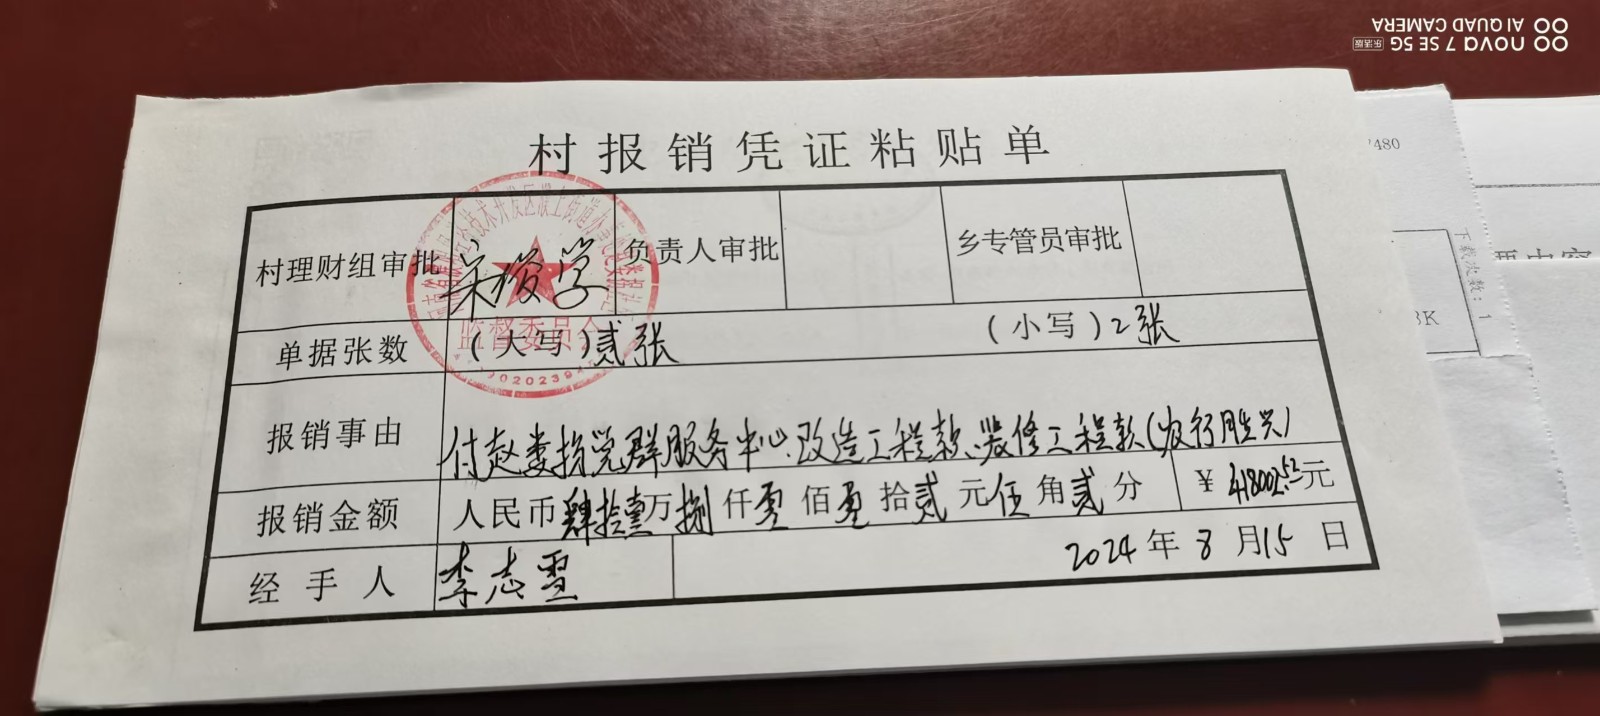 村报销凭证粘贴单
村理财组审批 宋俊学 负责人审批 乡专管员审批
单据张数 (大写)贰张 (小写)2张
报销事由 付赵娄指党群服务中心改造工程款、装修工程款(发行胜兴)
报销金额 人民币肆拾壹万捌仟零佰零拾贰元伍角贰分 ¥418002.52元
经手人 李志雪 2024年8月15日
监督委员会
下载次数:1
3K
nova 7 SE 5G 乐活版
AI QUAD CAMERA